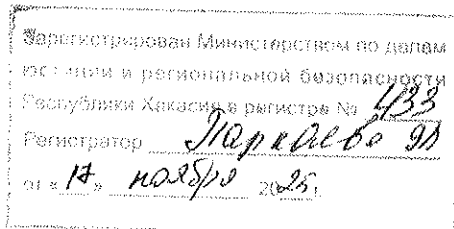 Зарегистрирован Министерством по делам
юстиции и региональной безопасности
Республики Хакасия в регистре № 433
Регистратор
от «17» ноября 2025г.